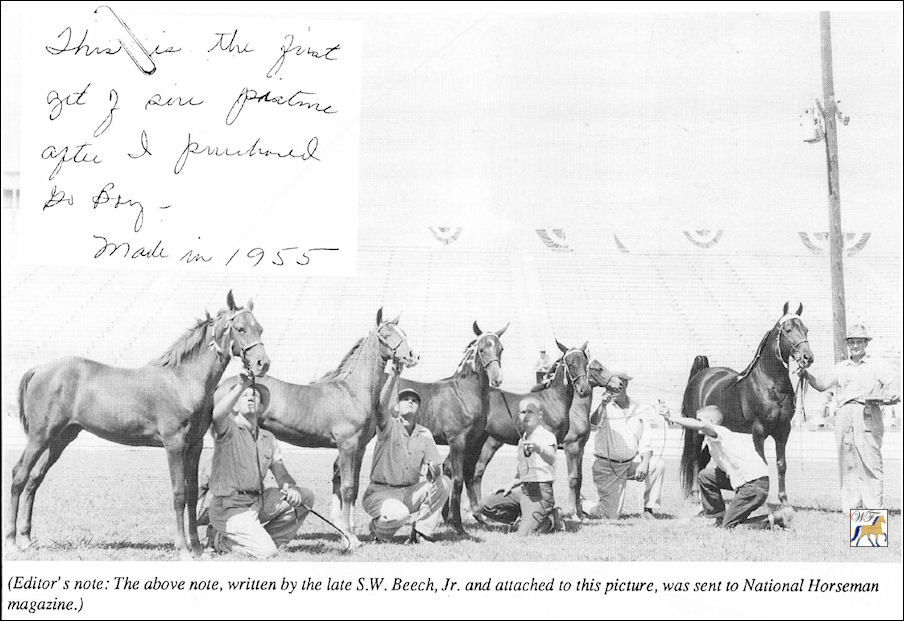 This is the first
get of sire pastime
after I purchased
Go Boy -
Made in 1955
WF
(Editor's note: The above note, written by the late S.W. Beech, Jr. and attached to this picture, was sent to National Horseman
magazine.)